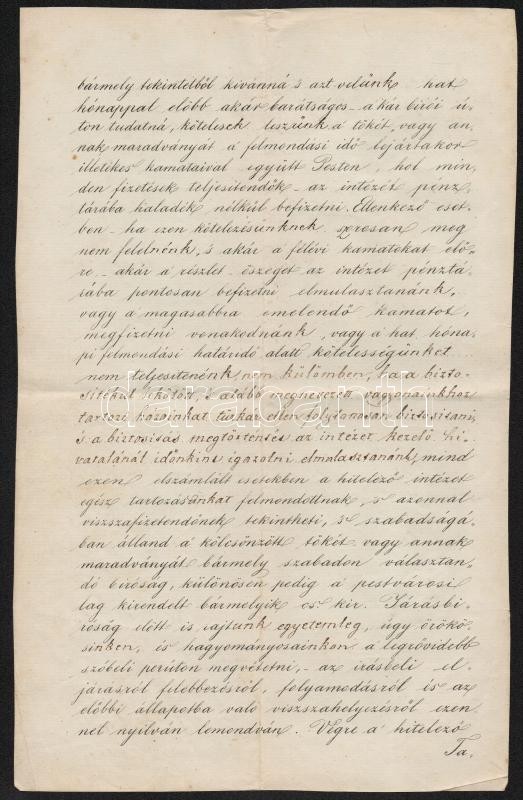 bármely tekintetből kivánná 's azt velünk hat
hónappal előbb akár barátságos - akár birói ú-
ton tudatná, kötelesek leszünk a tőkét, vagy an-
nak maradványát a felmondási idő lejártakor
illetékes kamataival együtt Pesten, hol min-
den fizetések teljesitendők - az intézet pénz
tárába haladék nélkül befizetni. Ellenkező eset-
ben - ha ezen kötelezésünknek szorosan meg
nem felelnénk, 's akár a félévi kamatokat elő-
re - akár a részlet - összeget az intézet pénztá-
rába pontosan befizetni elmulasztanánk,
vagy a magasabbra emelendő kamatot,
megfizetni vonakodnánk, vagy a hat hóna-
pi felmondási határidő alatt kötelességünket
nem teljesitenénk, nem külömben, ha a bizto-
sitékul lekötött, 's alább megnevezett vagyonainkhoz
tartozó házainkat tűzkár ellen folytonosan biztositani,
's a biztositás megtörténtét az intézet kezelő hi-
vatalánál időnkint igazolni elmulasztanánk, mind
ezen elszámlált esetekben a hitelező intézet
egész tartozásunkat felmondottnak, 's azonnal
viszszafizetendőnek tekintheti, 's szabadságá-
ban álland a kölcsönzött tőkét vagy annak
maradványát bármely szabadon választan-
dó biróság, különösen pedig a pestvárosi
lag kirendelt bármelyik cs. kir. Járásbi-
róság előtt is rajtunk egyetemleg, úgy örökö-
sinken, és hagyományosainkon a legrövidebb
szóbeli perúton megvétetni, - az irásbeli el-
járásról felebbezésről, folyamodásról és az
előbbi állapotba való viszszahelyezésről ezen-
nel nyilván lemondván. Végre a' hitelező
Ta-
darabanth